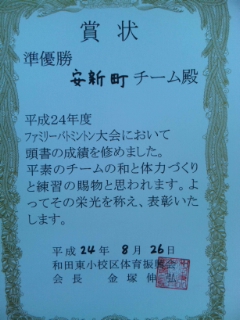 賞状
準優勝
安新町チーム殿
平成24年度
ファミリーバトミントン大会において
頭書の成績を修めました。
平素のチームの和と体力づくり
と練習の賜物と思われます。よ
ってその栄光を称え、表彰いた
します。
平成24年8月26日
和田東小校区体育振興会
会長 金塚伸弘